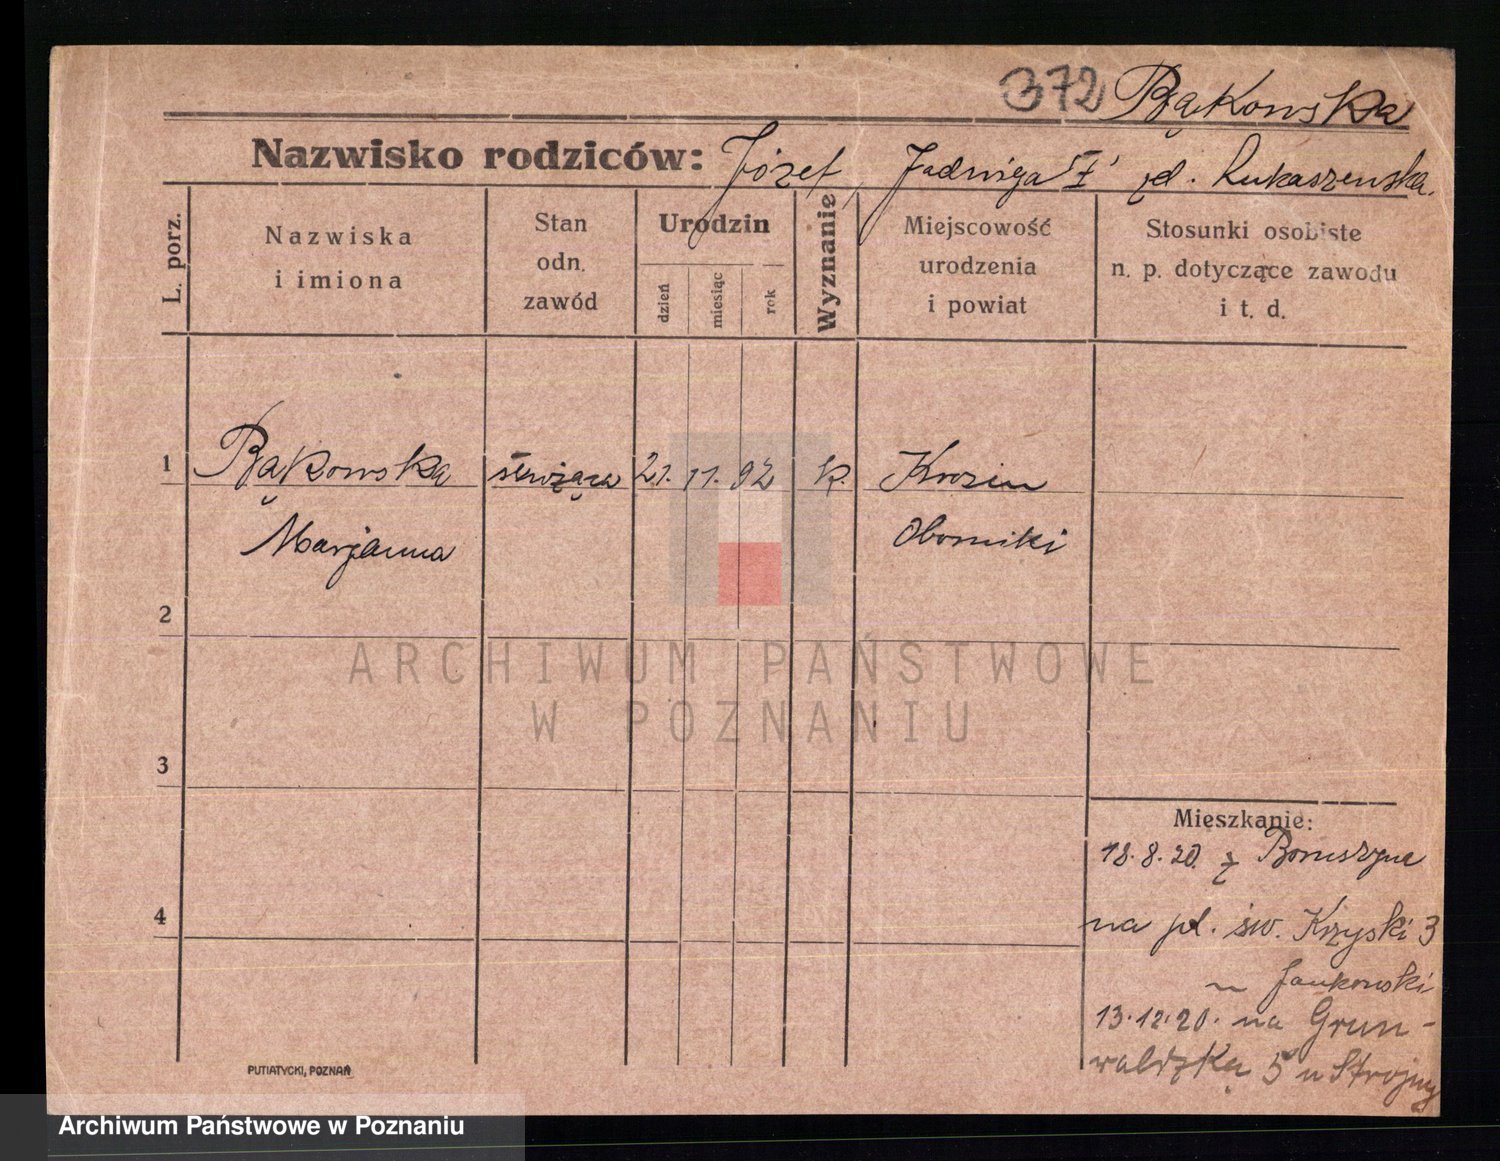 372 Bąkowska
Nazwisko rodziców: Józef, Jadwiga zd. Łukaszewska.
L. porz.
Nazwiska
i imiona
Stan
odn.
zawód
Urodzin
dzień
miesiąc
rok
Wyznanie
Miejscowość
urodzenia
i powiat
Stosunki osobiste
n. p. dotyczące zawodu
i t. d.
1 Bąkowska służąca 21. 11. 92 k.
Marjanna Oborniki
2
3
4
Mieszkanie:
18.8.20. z Boruszyne
na pl. św. Krzyski 3
u Jankowski
13.12.20. na Grun-
waldzką 5 u Strojny
PUTIATYCKI, POZNAŃ
ARCHIWUM PAŃSTWOWE
W POZNANIU
Archiwum Państwowe w Poznaniu